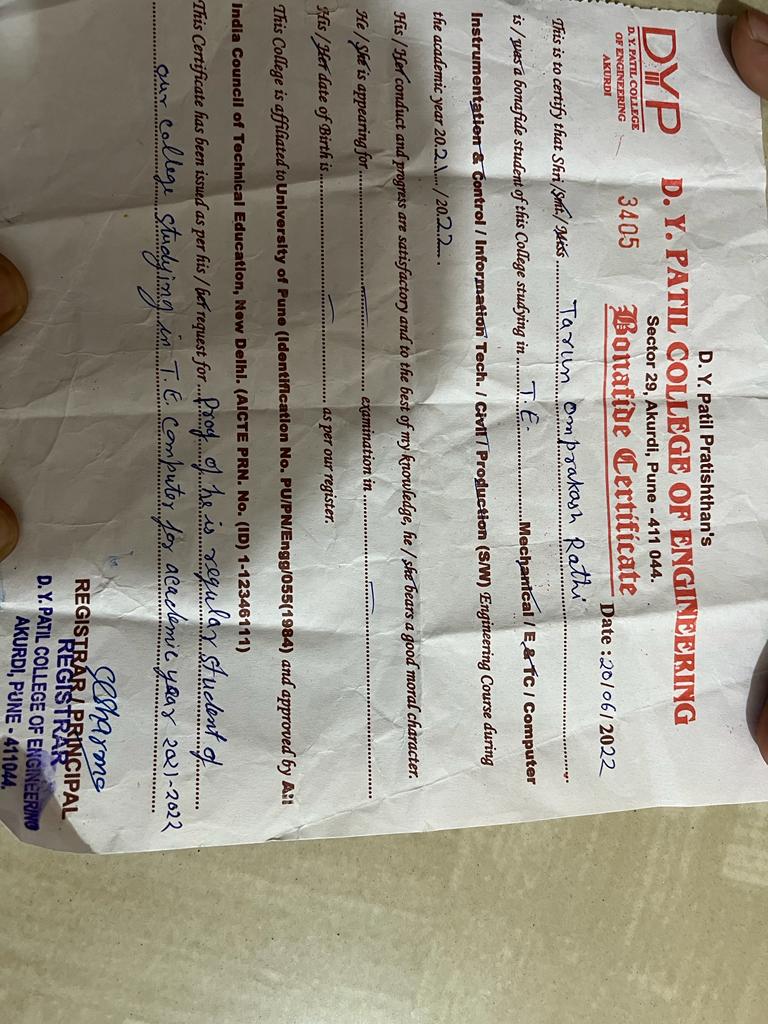 DYP
D. Y. PATIL COLLEGE
OF ENGINEERING
AKURDI
D. Y. Patil Pratishthan's
D. Y. PATIL COLLEGE OF ENGINEERING
Sector 29, Akurdi, Pune - 411 044.
3405 Bonafide Certificate Date : 20/06/2022
This is to certify that Shri./Smt./Miss Tarun omprakash Rathi
is / was a bonafide student of this College studying in T.E. Mechanical / E & TC / Computer
Instrumentation & Control / Information Tech. / Civil / Production (S/W) Engineering Course during
the academic year 2021 / 2022.
His / Her conduct and progress are satisfactory and to the best of my knowledge, he / she bears a good moral character.
He / She is appearing for — examination in —
His / Her date of Birth is — as per our register.
This College is affiliated to University of Pune (Identification No. PU/PN/Engg/055(1984) and approved by All
India Council of Technical Education, New Delhi. (AICTE PRN. No. (ID) 1-12346111)
This Certificate has been issued as per his / her request for Proof of he is regular student of
our college studying in T.E. Computer for academic year 2021-2022
REGISTRAR / PRINCIPAL
REGISTRAR
D. Y. PATIL COLLEGE OF ENGINEERING
AKURDI, PUNE - 411044.